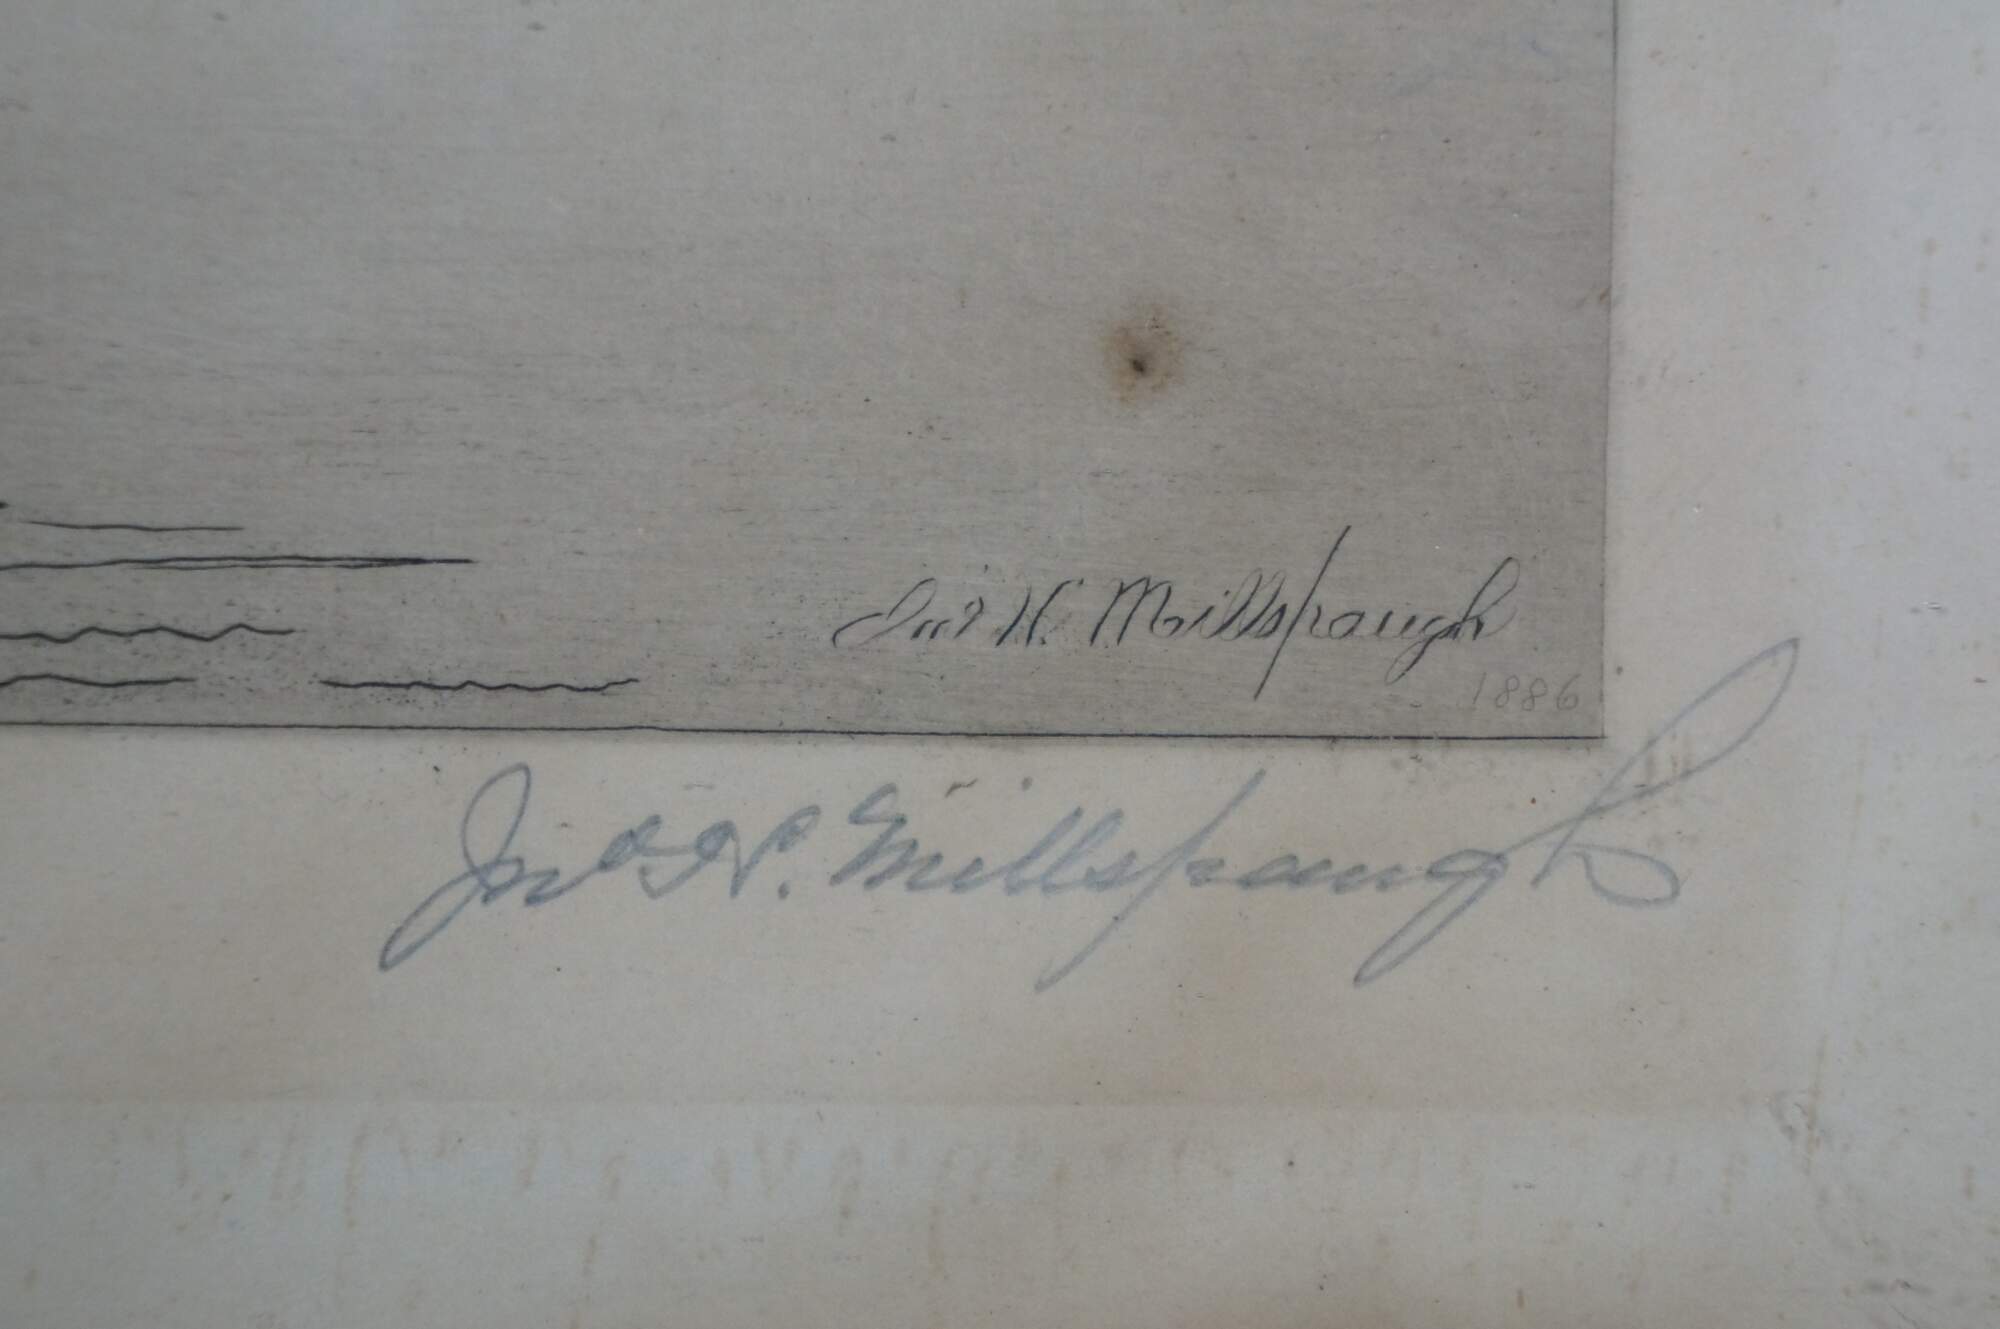 Jno H. Millspaugh
1886
Jno H. Millspaugh